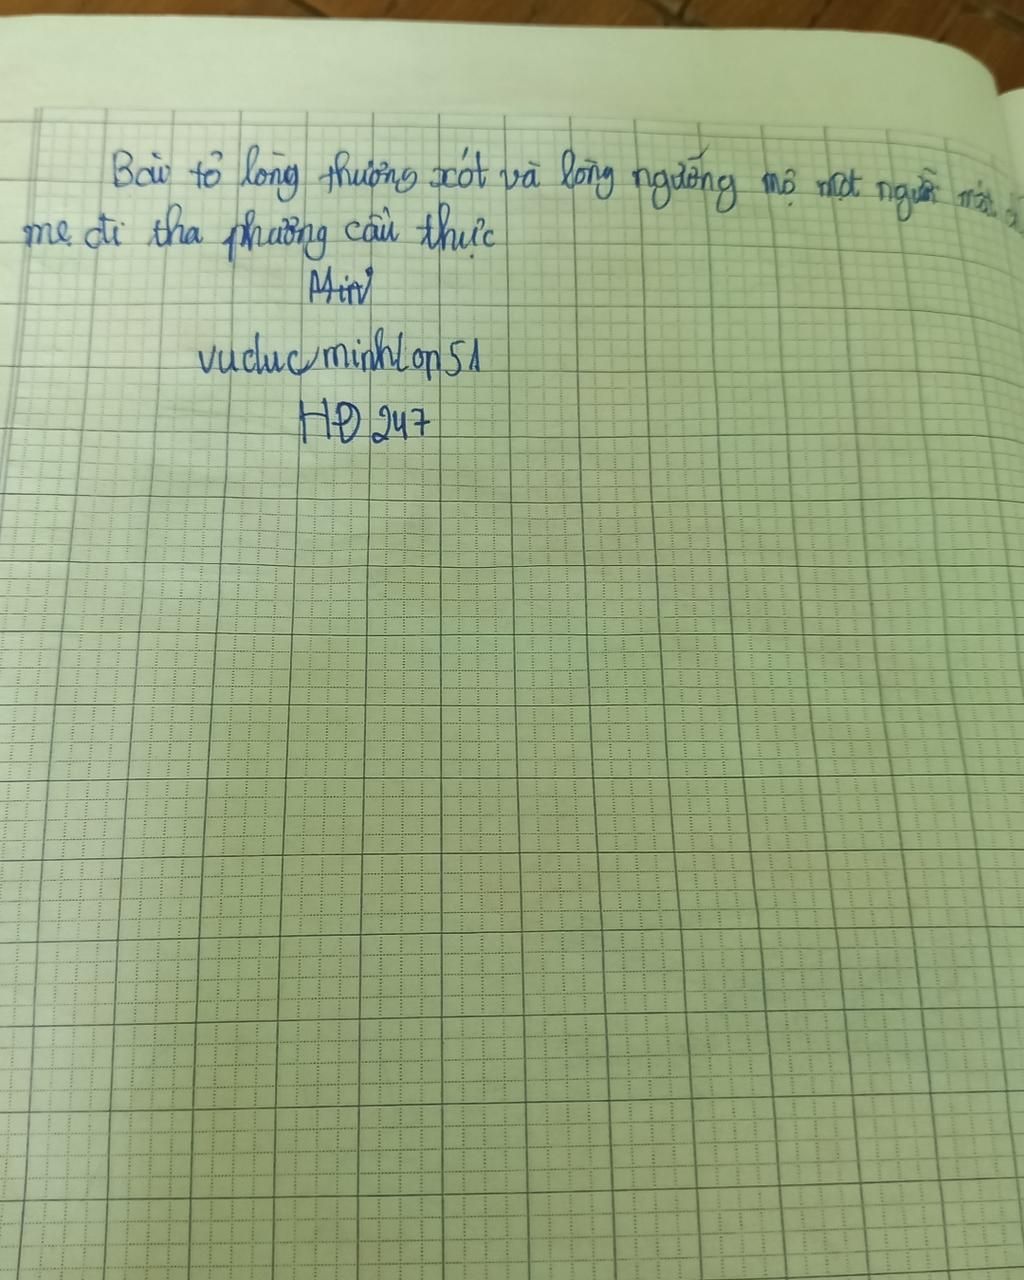 Bài tỏ lòng thương xót và lòng ngưỡng mộ một người
mẹ đi tha phương cầu thực
Min
vuducminhlop5A
HĐ 247